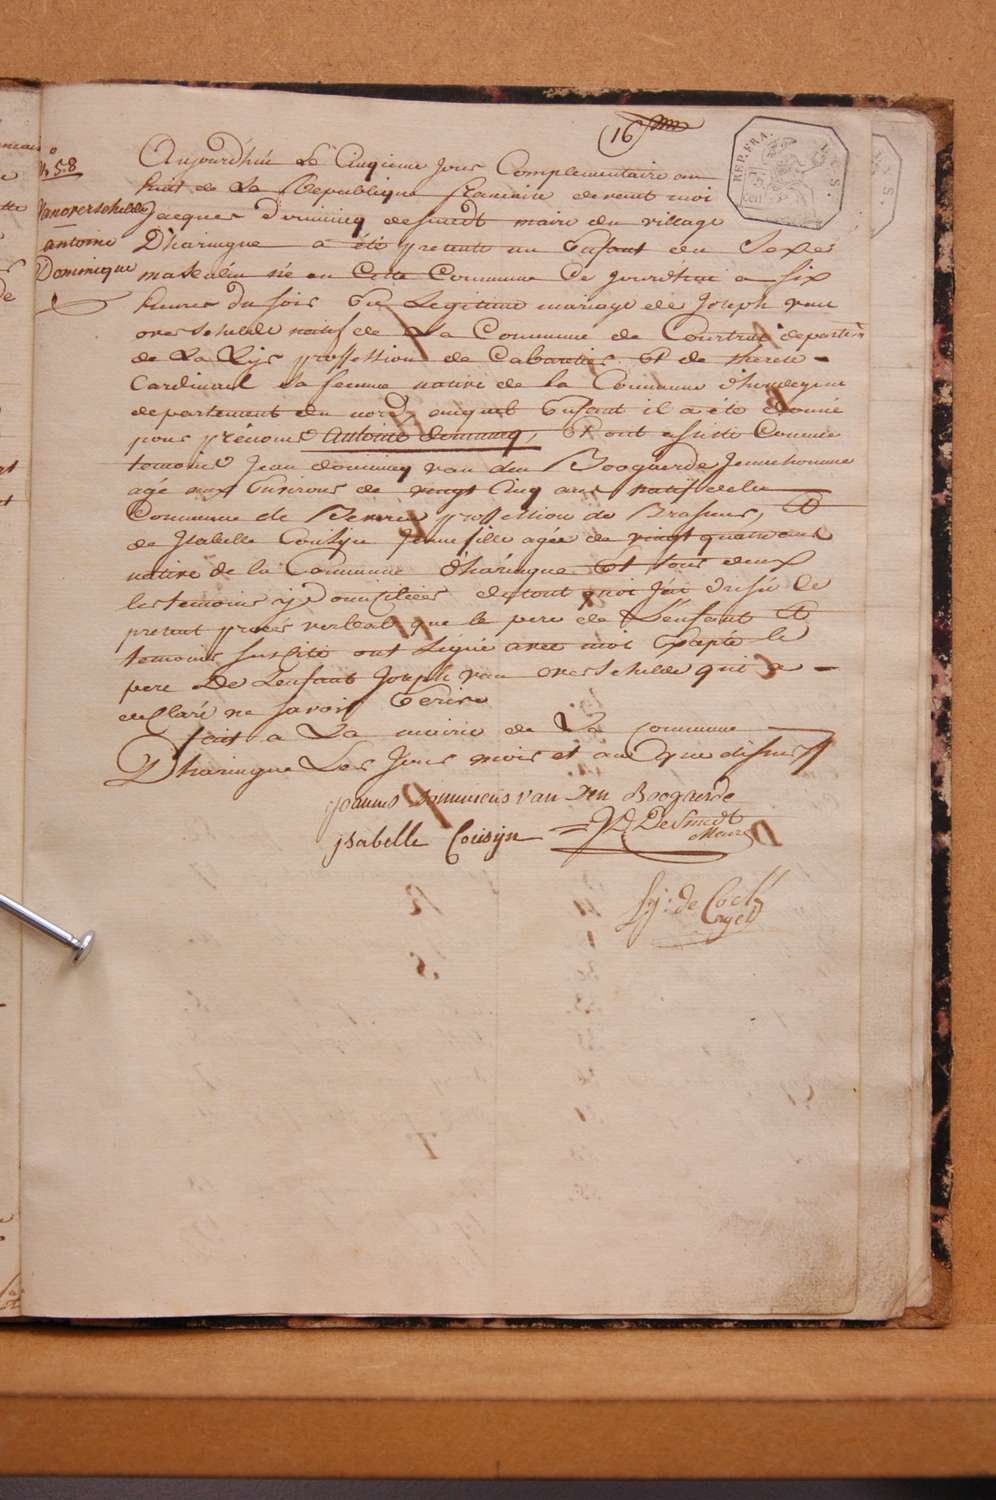 16
REP. FRA.
N° 58
Vanoverschelde
antoine
Dominique
Aujourd'huï Le Cinqieme Jour Complementaire an
huit de La Republique francaise devant moi
Jacques Dominicq desmedt maire du village
D'haringue a été presenté un Enfant du Sexe
masculin né en Cette Commune Ce jourdhui a six
heures du soir De Legitime mariage de Joseph van
overschelde natif de La Commune de Courtrai departm
de La Lijs proffession de Cabartier Et de therese
Cardinael sa femme native de la Commune d'hondegem
departement du nord, auquel Enfant il a été donné
pour prénoms antoine dominicq, Et ont assisté Comme
temoins Jean dominicq van den Boogaerde Jeunehomme
agé aux Environs de vingt Cinq ans natif de la
Commune de proffession de Brasseur, Et
de Isabelle Cousijn Jeune fille agée de vingt quatre ans
native de la Commune d'haringue Et tous deux
les temoins ÿ Domiciliés du tout quoi J'ai dressé le
present procés verbal que le pere de L'enfant Et
temoins susdits ont signé avec moi Excepté le
pere De Lenfant Joseph van overschelde qui a
declaré ne savoir Ecrire
fait a La mairie de La commune
D'haringue Les Jour mois et an que dessus
joannes Dominicus van Den Boogaerde
ysabelle Cousijn J D DeSmedt
Maire